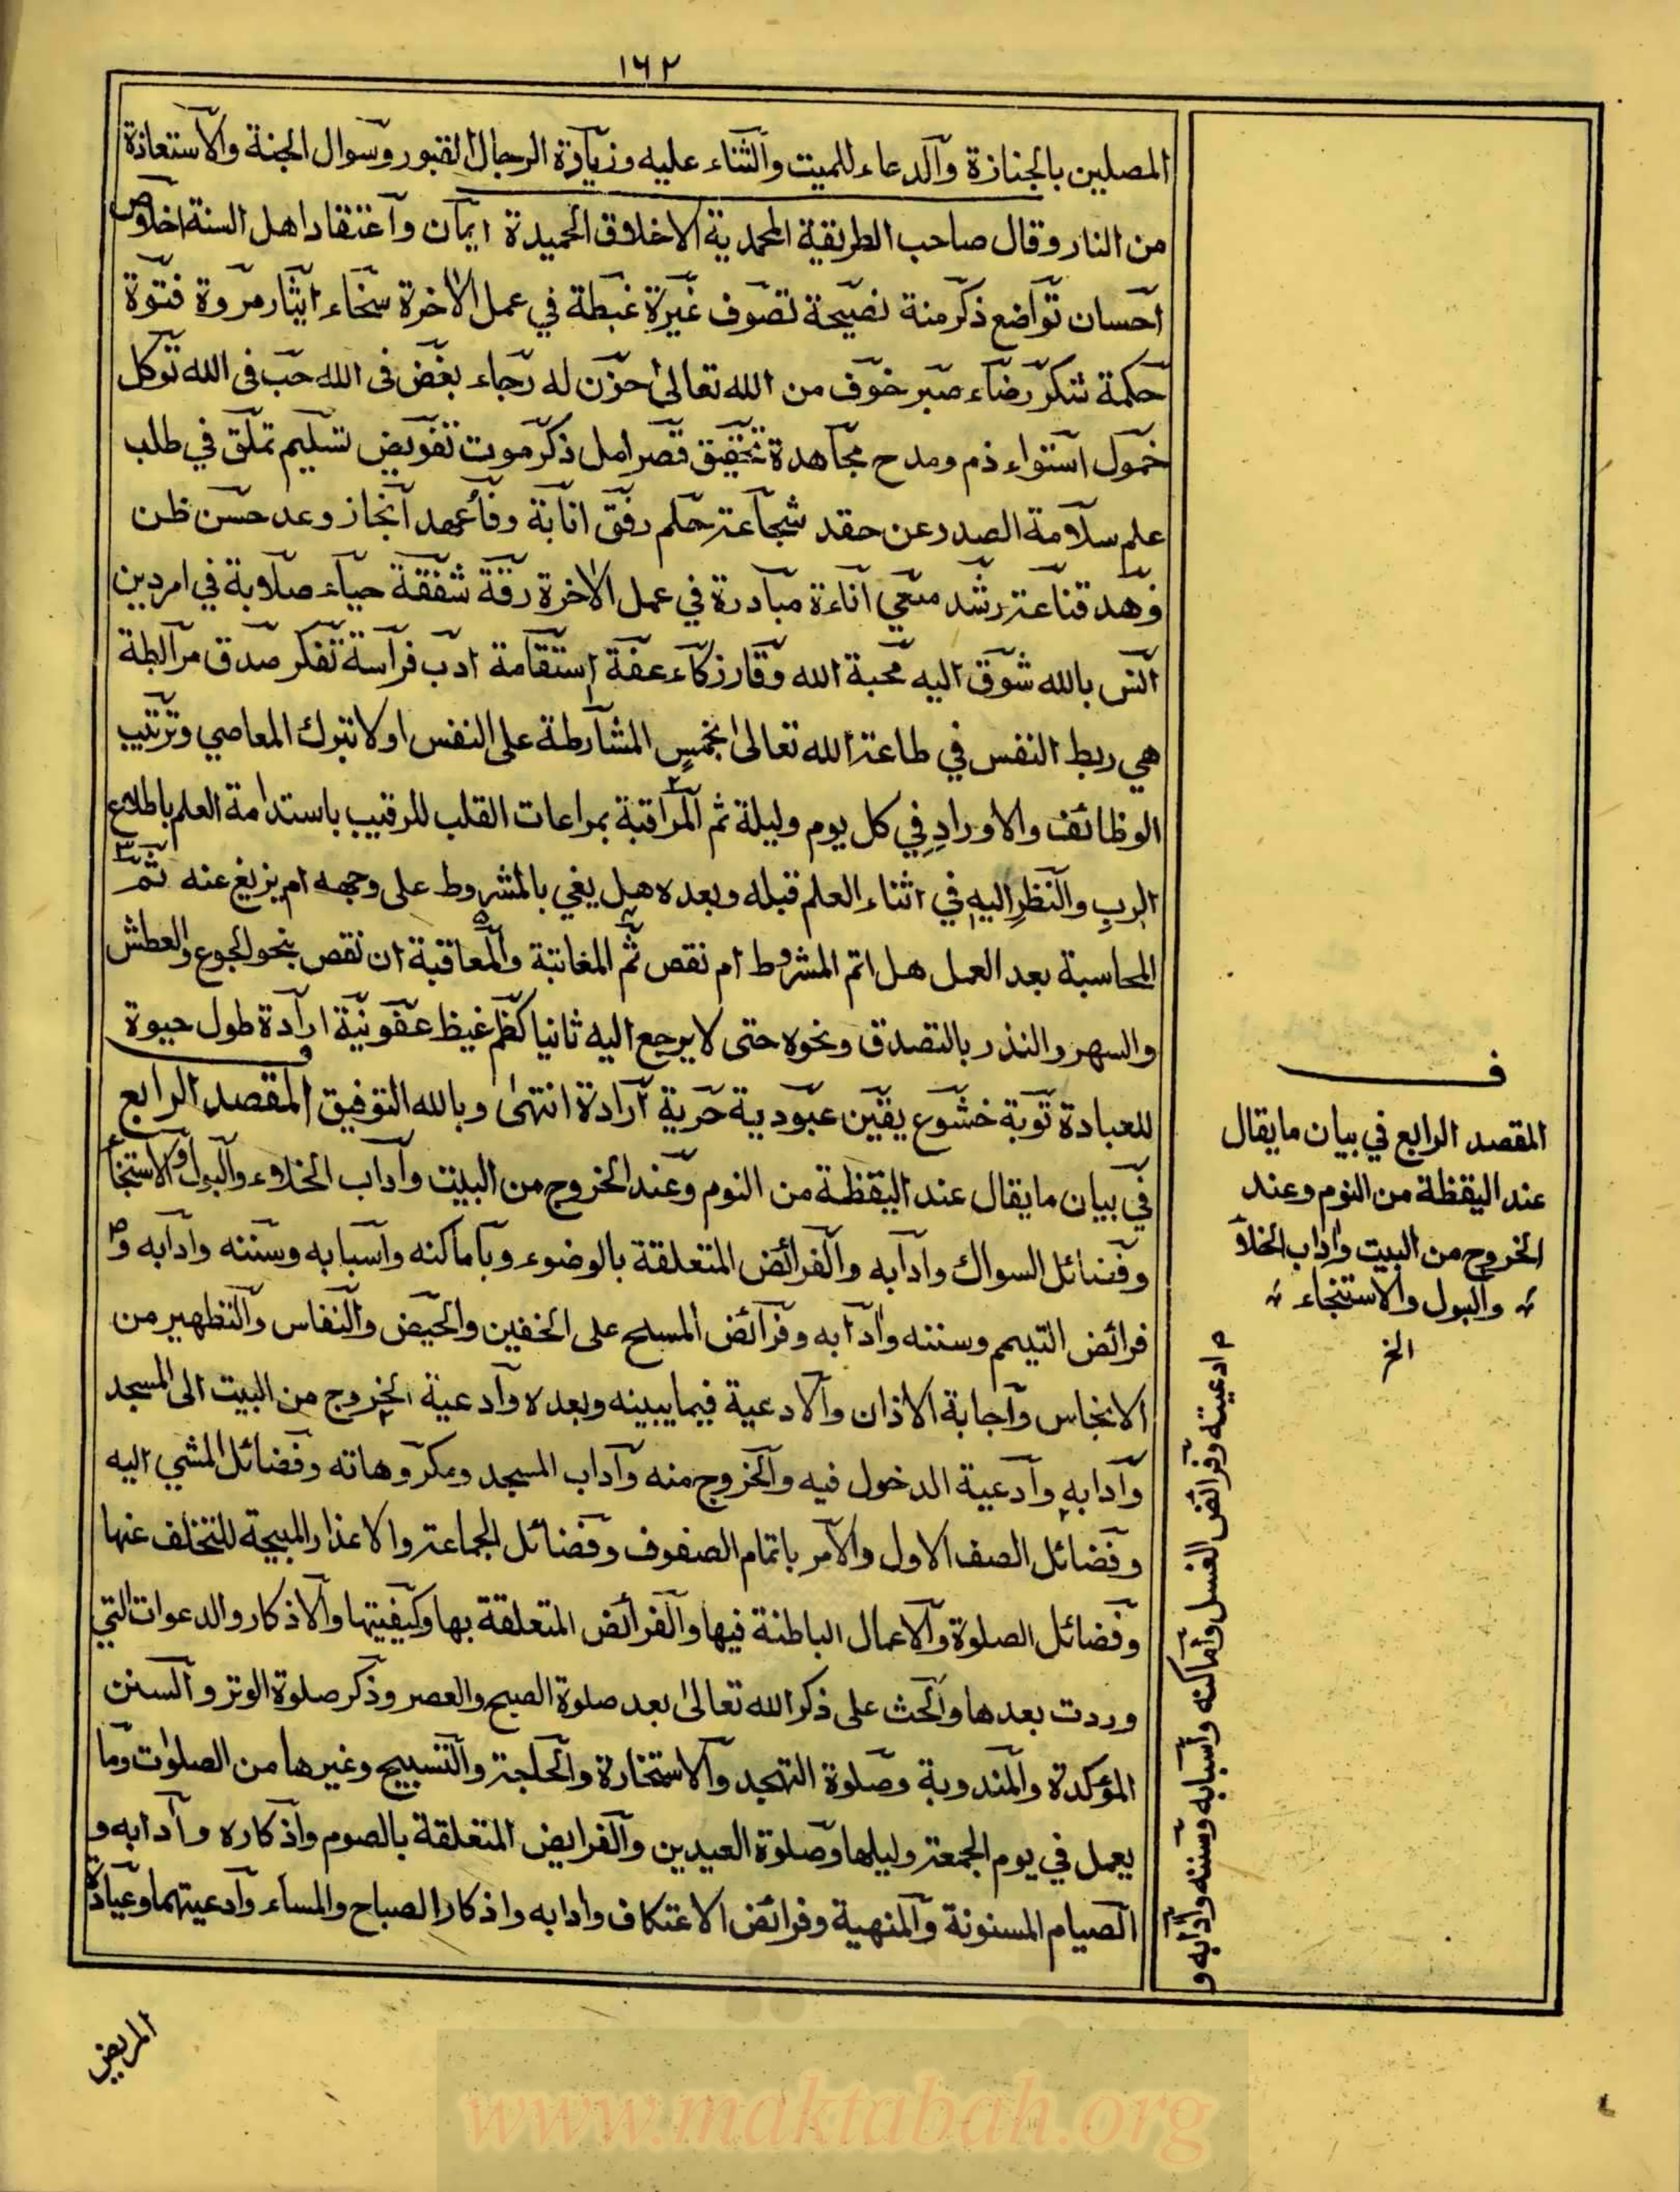 ١٦٢
المصلين بالجنازة والدعاء للميت والثناء عليه وزيارة الرجال القبور وسوال الجنة والاستعاذة
من النار وقال صاحب الطريقة المحمدية الاخلاق الحميدة ايمان واعتقاد اهل السنة اخلاص
احسان تواضع ذكر منة نصيحة تصوف غيرة غبطة في عمل الاخرة سخاء ايثار مروة فتوة
حكمة شكر رضاء صبر خوف من الله تعالى حزن له رجاء بغض فى الله حب فى الله توكل
خمول استواء ذم ومدح مجاهدة تحقيق قصر امل ذكر موت تفويض تسليم تملق في طلب
علم سلامة الصدر عن حقد شجاعة حلم رفق انابة وفاء عهد انجاز وعد حسن ظن
زهد قناعة رشد سعي اناءة مبادرة في عمل الاخرة رقة شفقة حياء صلابة في امر دين
انس بالله شوق اليه محبة الله وقار زكاء عفة استقامة ادب فراسة تفكر صدق مرابطة
هي ربط النفس في طاعة الله تعالى بخمس المشارطة على النفس اولا بترك المعاصي وترتيب
الوظائف والاوراد في كل يوم وليلة ثم المراقبة بمراعات القلب للرقيب باستدامة العلم باطلاع
الرب والنظر اليه في اثناء العلم قبله وبعده هل يفي بالمشروط على وجهه ام يزيغ عنه ثم
المحاسبة بعد العمل هل اتم المشروط ام نقص ثم المعاتبة والمعاقبة ان نقص بنحو الجوع والعطش
والسهر والنذر بالتصدق ونحوه حتى لا يرجع اليه ثانيا كظم غيظ عفو نية ارادة طول حيوة
للعبادة توبة خشوع يقين عبودية حرية ارادة انتهى وبالله التوفيق المقصد الرابع
في بيان ما يقال عند اليقظة من النوم وعند الخروج من البيت وآداب الخلاء والبول والاستنجاء
وفضائل السواك وادابه والفرائض المتعلقة بالوضوء وباماكنه واسبابه وسننه وادابه و م
فرائض التيمم وسننه وادابه وفرائض المسح على الخفين والحيض والنفاس والتطهير من
الانجاس واجابة الاذان والادعية فيما بينه وبعده وادعية الخروج من البيت الى المسجد
وادابه وادعية الدخول فيه والخروج منه وآداب المسجد ومكروهاته وفضائل المشي اليه
وفضائل الصف الاول والامر باتمام الصفوف وفضائل الجماعة والاعذار المبيحة للتخلف عنها
وفضائل الصلوة والاعمال الباطنة فيها والفرائض المتعلقة بها وكيفيتها والاذكار والدعوات التي
وردت بعدها والحث على ذكر الله تعالى بعد صلوة الصبح والعصر وذكر صلوة الوتر والسنن
المؤكدة والمندوبة وصلوة التهجد والاستخارة والحاجة والتسبيح وغيرها من الصلوات وما
يعمل في يوم الجمعة وليلها وصلوة العيدين والفرايض المتعلقة بالصوم واذكاره وآدابه و
الصيام المسنونة والمنهية وفرائض الاعتكاف وادابه واذكار الصباح والمساء وادعيتهما وعيادة
المريض
ف
المقصد الرابع في بيان ما يقال
عند اليقظة من النوم وعند
الخروج من البيت واداب الخلاء
والبول والاستنجاء
الخ
م ادعيته وفرائض الغسل واماكنه واسبابه وسننه وادابه و
www.maktabah.org